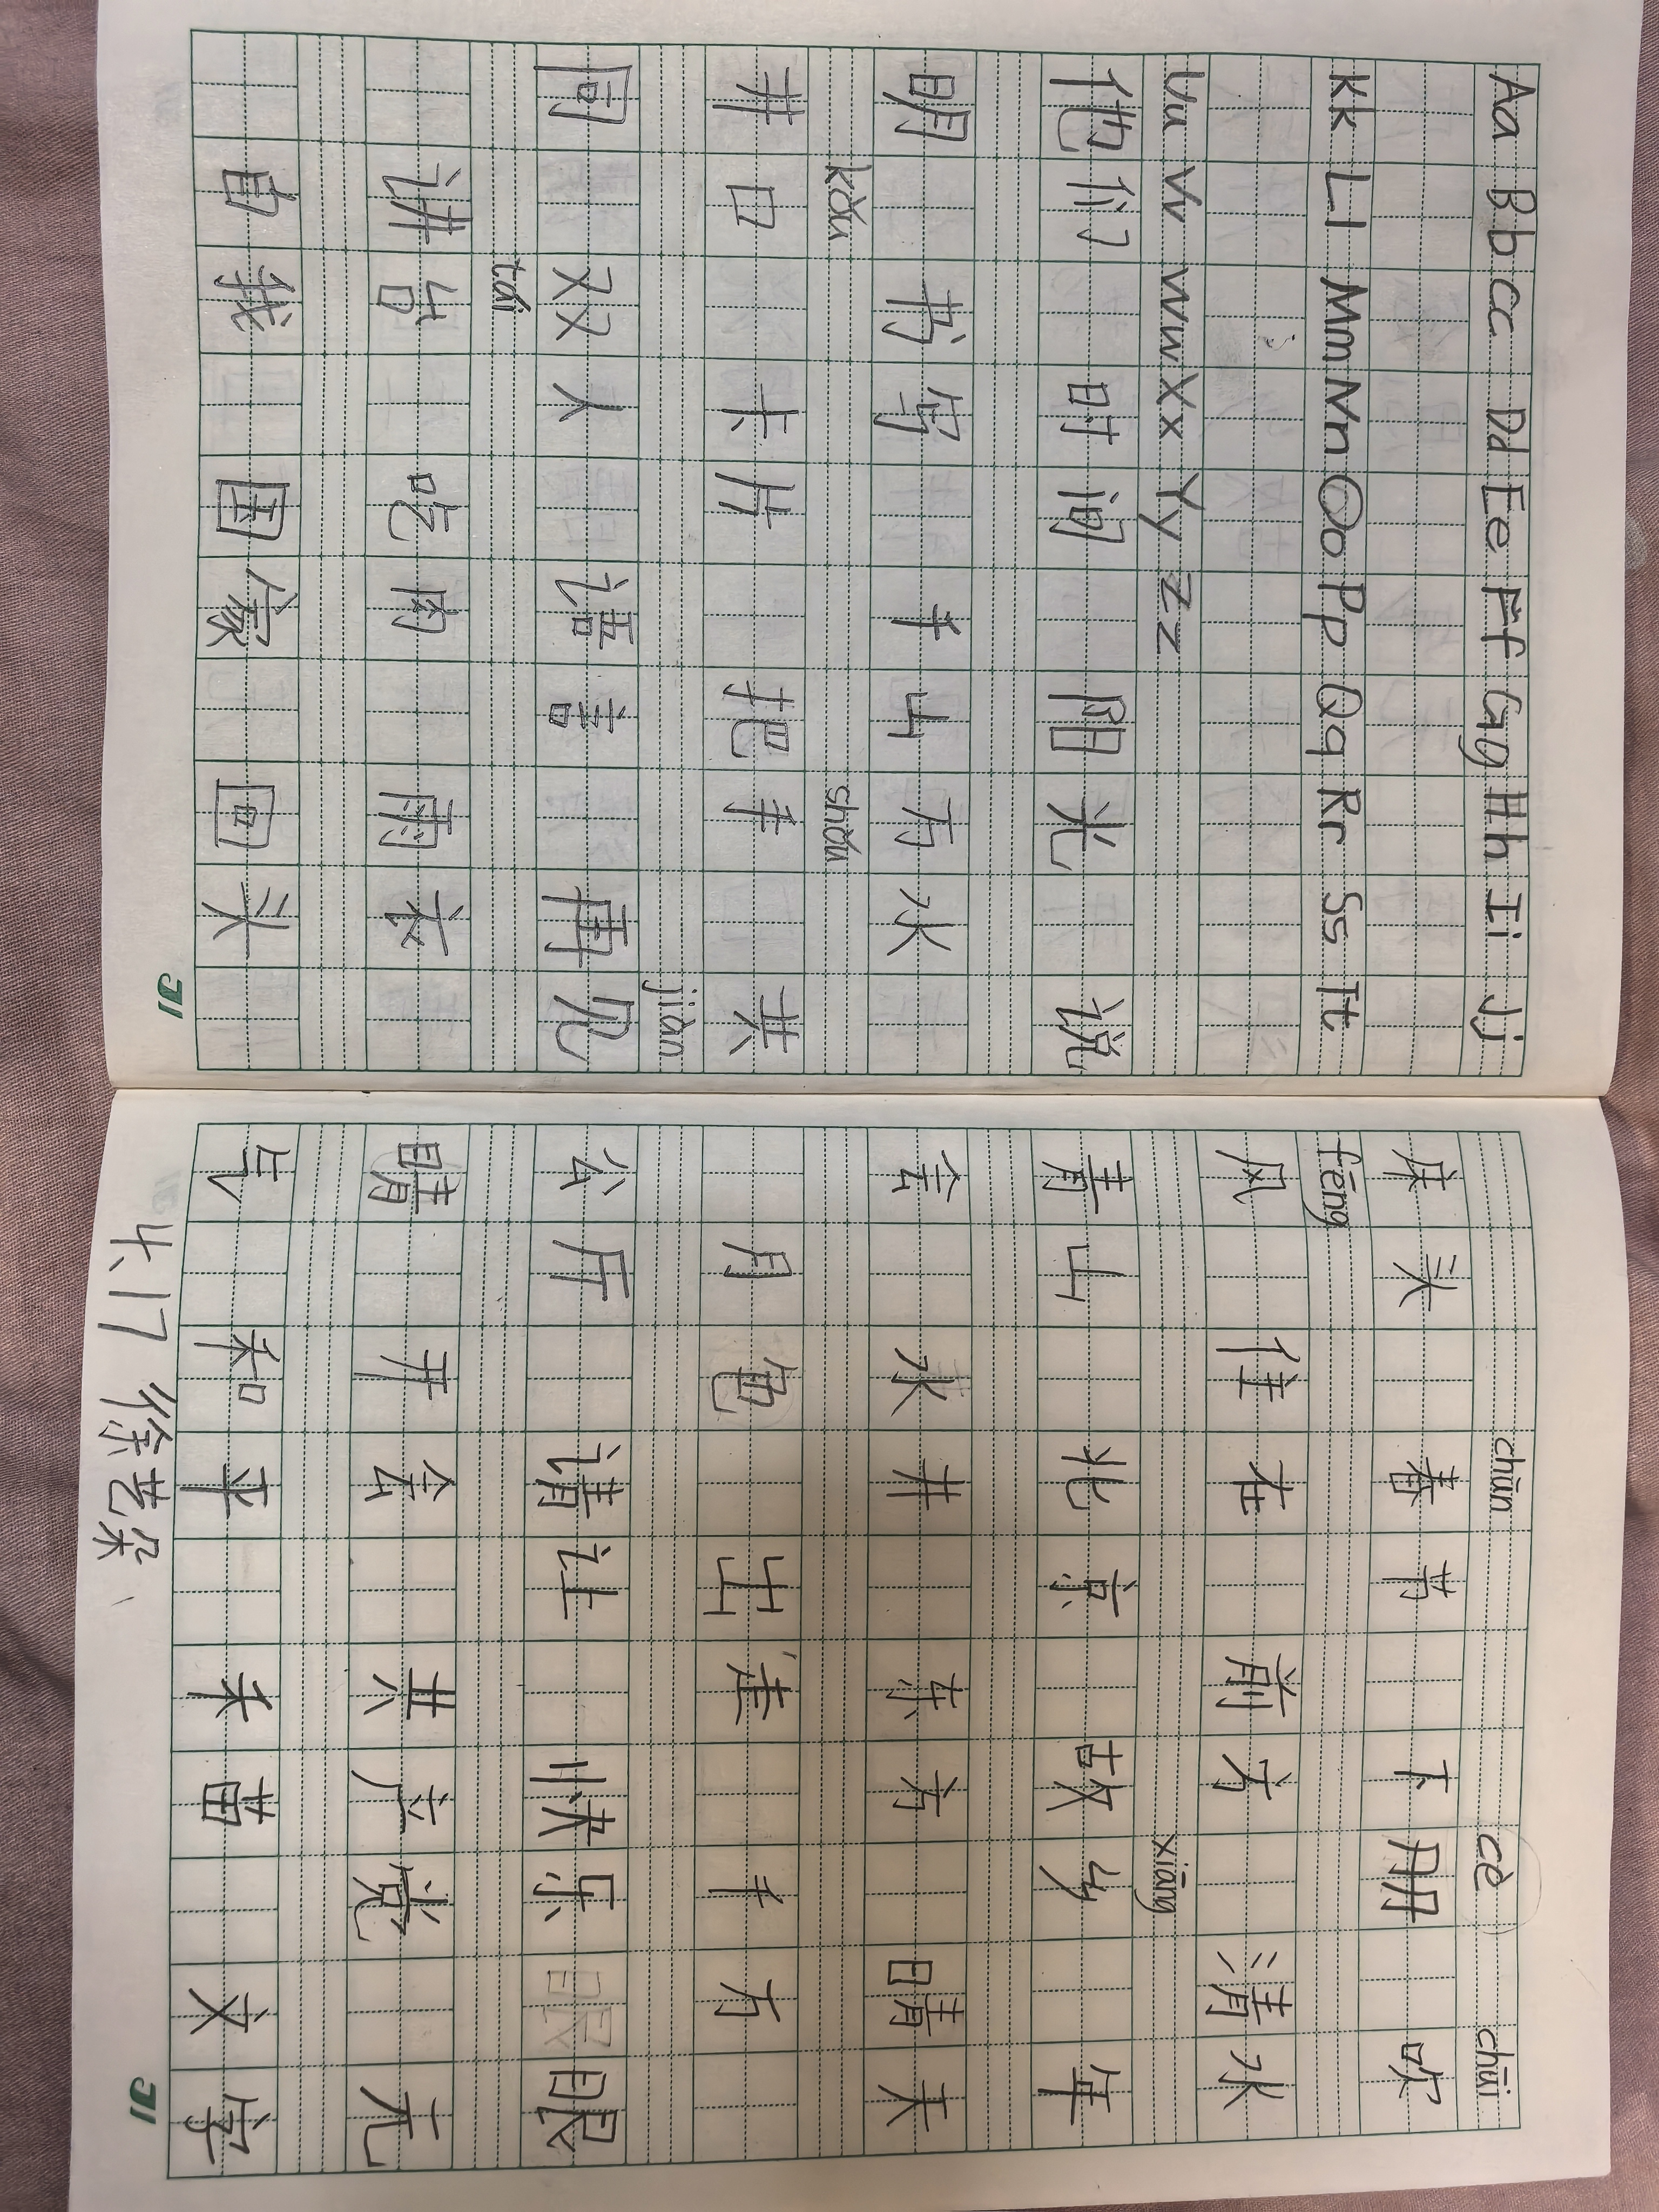 Aa Bb Cc Dd Ee Ff Gg Hh Ii Jj
Kk Ll Mm Nn Oo Pp Qq Rr Ss Tt
Uu Vv Ww Xx Yy Zz
他们 时间 阳光 说
明 书写 牛山 万水
kǒu shǒu
井口 卡片 把手 共
jiàn
同 双人 语言 再见
tái
讲台 吃肉 雨衣
自我 国家 回头
31
chūn cè chuī
床头 春节 下册 吹
fēng
风 住在 前方 清水
xiāng
青山 北京 故乡 年
会 水井 东方 晴天
月 出 千万
公厅 请让 快乐 眼
睛 开会 共产党 元
气 和平 禾苗 文字
4.17 徐艺朵
31